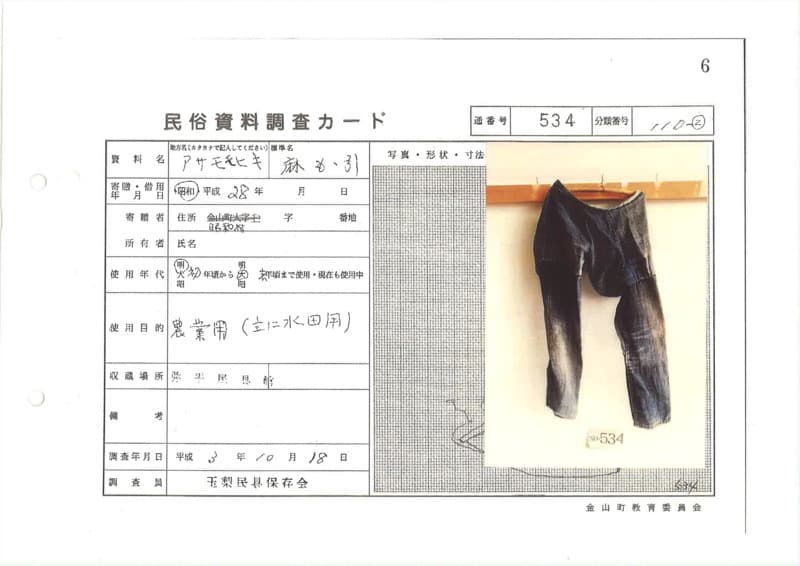 6
民俗資料調査カード
通番号 534 分類番号 110-②
資料名 地方名(カタカナで記入してください) 標準名
アサモモヒキ 麻もゝ引
写真・形状・寸法
寄贈・借用年月日 昭和 平成 28年 月 日
寄贈者 住所 金山町大字 字 番地
昭和村
所有者 氏名
使用年代 明 大 昭 初年頃から 明 大 昭 年頃まで使用・現在も使用中
使用目的 農業用(主に水田用)
収蔵場所
備考
調査年月日 平成 3年 10月 18日
調査員 玉梨民具保存会
NO.534
534
金山町教育委員会